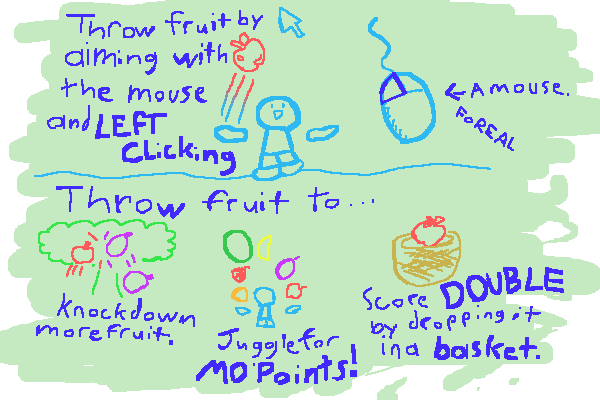 Throw fruit by
aiming with
the mouse
and LEFT
Clicking
← A mouse.
FOREAL
Throw fruit to...
Knockdown
more fruit.
Juggle for
MO Points!
Score DOUBLE
by dropping it
in a basket.